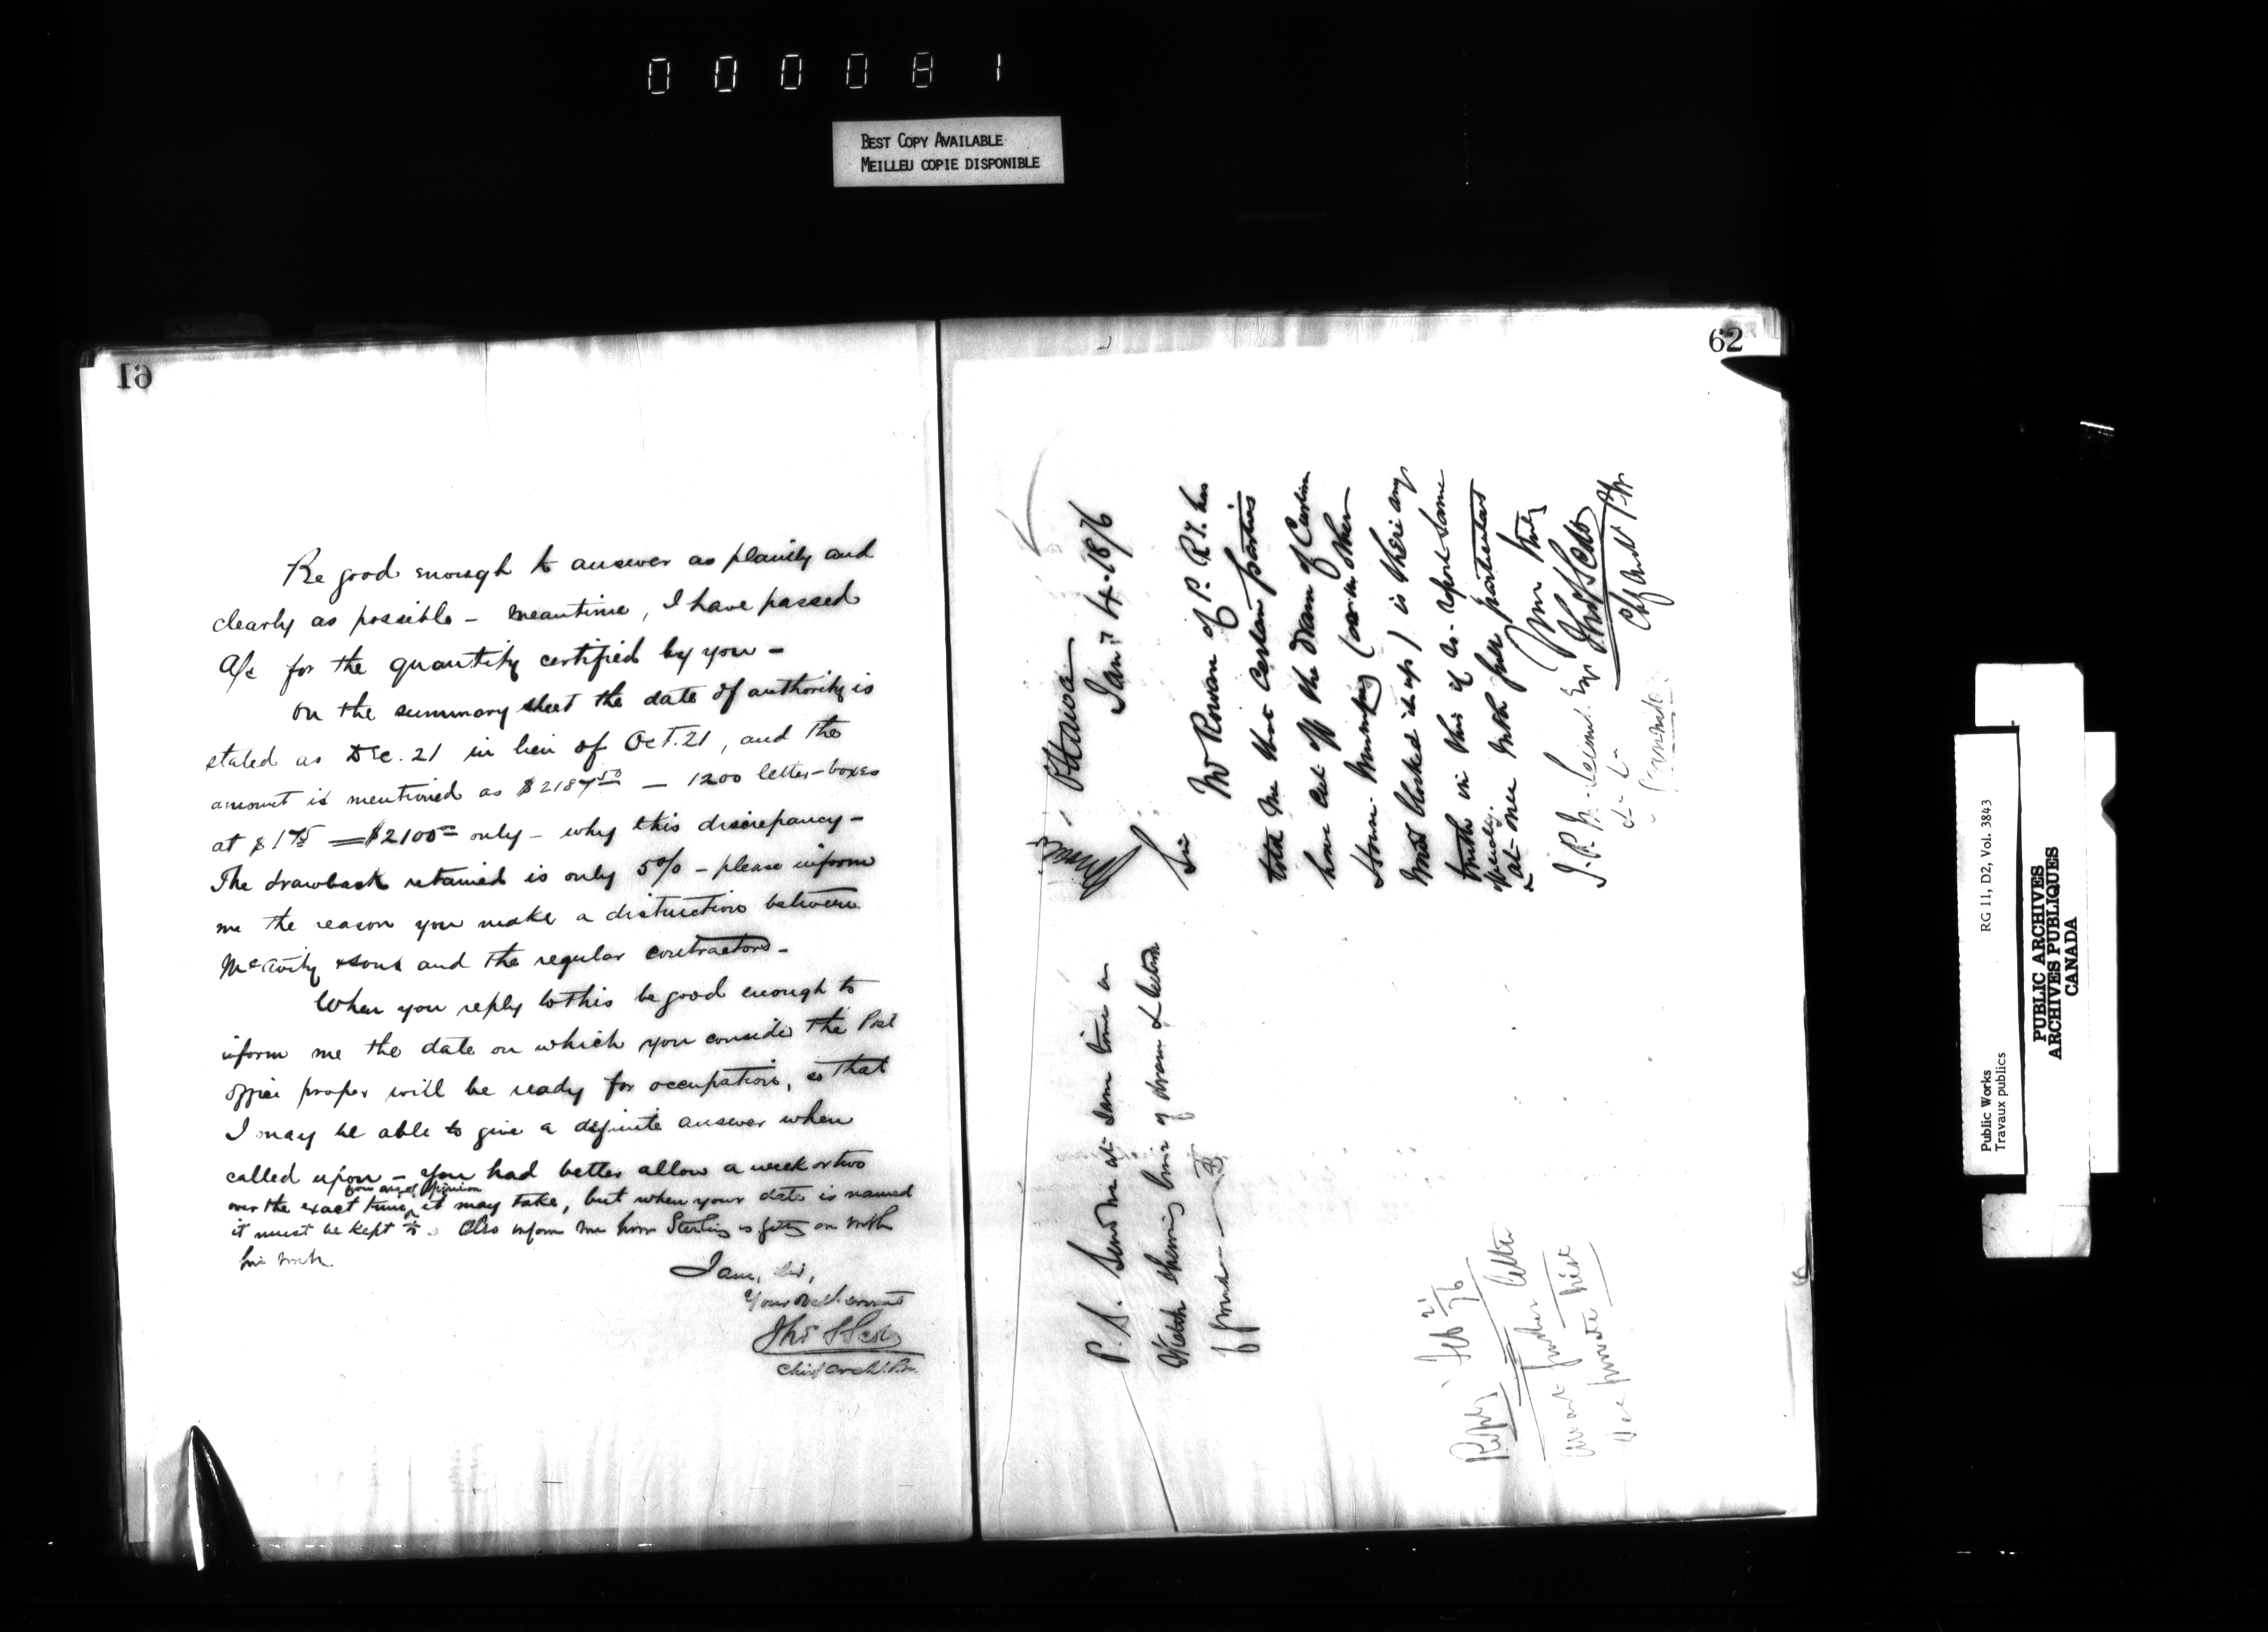 000081
BEST COPY AVAILABLE
MEILLEU COPIE DISPONIBLE
61
Be good enough to answer as plainly and
clearly as possible – meantime, I have passed
A/c for the quantity certified by you –
On the summary sheet the date of authority is
stated as Dec. 21 in lieu of Oct. 21, and the
amount is mentioned as $2187.50 — 1200 letter-boxes
at $1.75 = $2100.00 only – why this discrepancy –
The drawback retained is only 5% – please inform
me the reason you make a distinction between
McAvity & Sons and the regular contractors –
When you reply to this be good enough to
inform me the date on which you consider the Post
office proper will be ready for occupation, so that
I may be able to give a definite answer when
called upon – you had better allow a week or two
over the exact time you are of opinion it may take, but when your date is named
it must be kept to. Also inform me how Sterling is getting on with
his work.
I am, Sir,
Your obedt. servant
Thos S Scott
Chief Archt. P.W.
62
Ottawa
Jany 4. 1876
Sir
Mr Rowan of P. R. Y. has
told me that certain parties
have cut off the drain of
House
blocked it up) is there any
truth in this if so report same
at once with full particulars
Yours truly
Thos S Scott
Chf Archt P.W.
J. P. M.
P.S. Send me at same time a
Sketch showing line of drain &
of ground
Reply Feb 2/76
further letter
See private
Public Works
Travaux publics
RG 11, D2, Vol. 3843
PUBLIC ARCHIVES
ARCHIVES PUBLIQUES
CANADA